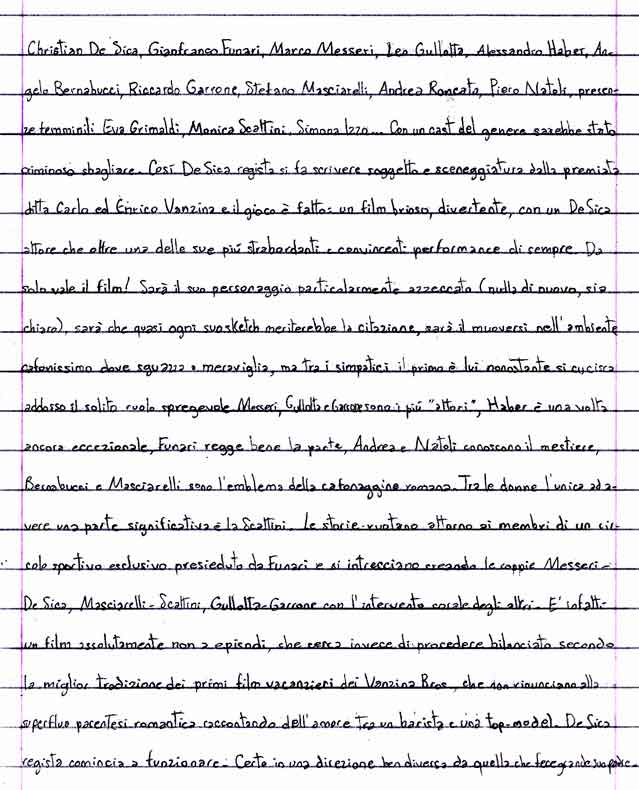 Christian De Sica, Gianfranco Funari, Marco Messeri, Leo Gullotta, Alessandro Haber, An-
gelo Bernabucci, Riccardo Garrone, Stefano Masciarelli, Andrea Roncato, Piero Natoli, presen-
ze femminili: Eva Grimaldi, Monica Scattini, Simona Izzo... Con un cast del genere sarebbe stato
criminoso sbagliare. Così De Sica regista si fa scrivere soggetto e sceneggiatura dalla premiata
ditta Carlo ed Enrico Vanzina e il gioco è fatto: un film brioso, divertente, con un De Sica
attore che offre una delle sue più strabordanti e convincenti performance di sempre. Da
solo vale il film! Sarà il suo personaggio particolarmente azzeccato (nulla di nuovo, sia
chiaro), sarà che quasi ogni suo sketch meriterebbe la citazione, sarà il muoversi nell'ambiente
cafonissimo dove sguazza a meraviglia, ma tra i simpatici il primo è lui nonostante si cucisca
addosso il solito ruolo spregevole. Messeri, Gullotta e Garrone sono i più "attori", Haber è una volta
ancora eccezionale, Funari regge bene la parte, Andrea e Natoli conoscono il mestiere,
Bernabucci e Masciarelli sono l'emblema della cafonaggine romana. Tra le donne l'unica ad a-
vere una parte significativa è la Scattini. Le storie ruotano attorno ai membri di un cir-
colo sportivo esclusivo presieduto da Funari e si intrecciano creando le coppie Messeri-
De Sica, Masciarelli-Scattini, Gullotta-Garrone con l'intervento corale degli altri. E' infatti
un film assolutamente non a episodi, che cerca invece di procedere bilanciato secondo
la miglior tradizione dei primi film vacanzieri dei Vanzina Bros, che non rinunciano alla
superflua parentesi romantica raccontando dell'amore tra un barista e una top-model. De Sica
regista comincia a funzionare. Certo in una direzione ben diversa da quella che fece grande suo padre.